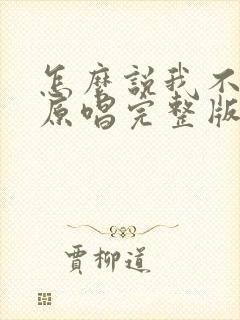 怎麼説我不
原唱完整版
賈柳道